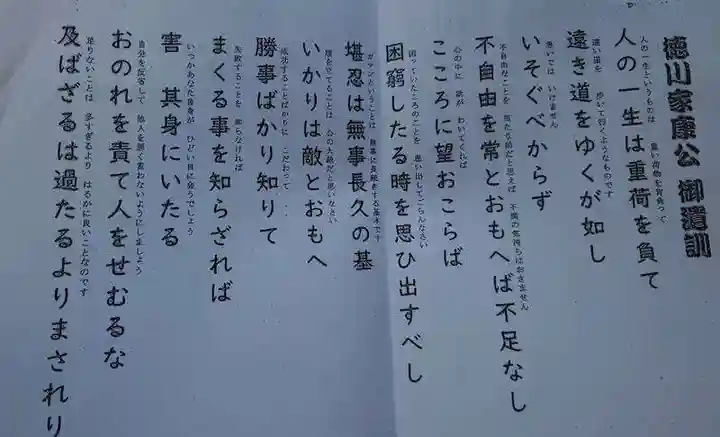 徳川家康公 御遺訓
人の一生というものは 重い荷物を背負って
人の一生は重荷を負て
遠い道を 歩いて行くようなものです
遠き道をゆくが如し
急いでは いけません
いそぐべからず
不自由なことを 当たり前だと思えば 不満の気持ちはおきません
不自由を常とおもへば不足なし
心の中に 欲が わいてくれば
こころに望おこらば
困っていたころのことを 思い出してごらんなさい
困窮したる時を思ひ出すべし
ガマンということは 無事に長続きする基本です
堪忍は無事長久の基
腹を立てることは 心の大敵だと思いなさい
いかりは敵とおもへ
成功することばかりに こだわって
勝事ばかり知りて
失敗することを 知らなければ
まくる事を知らざれば
いつかあなた自身が ひどい目に会うでしょう
害 其身にいたる
自分を反省して 他人を悪く責わないようにしましょう
おのれを責て人をせむるな
足りないことは 多すぎるより はるかに良いことなのです
及ばざるは過たるよりまされり